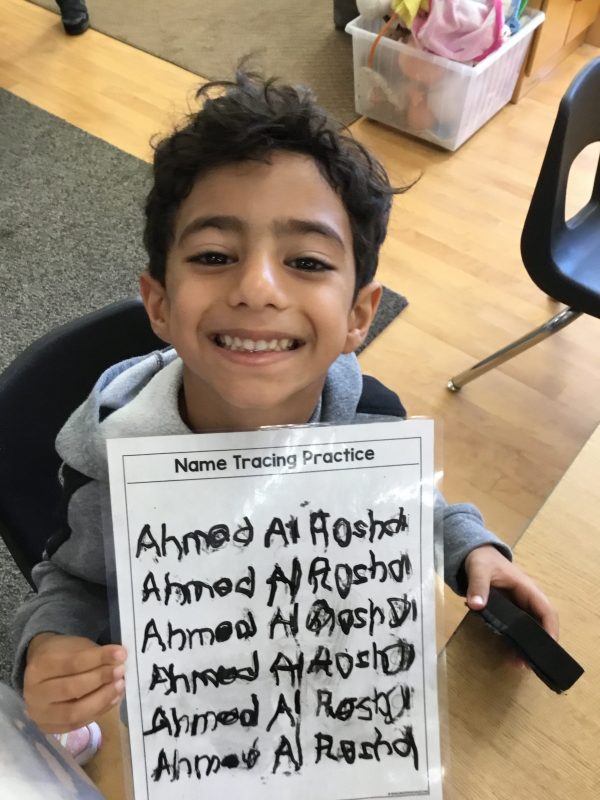 Name Tracing Practice
Ahmed Al Roshdi
Ahmed Al Roshdi
Ahmed Al Roshdi
Ahmed Al Roshdi
Ahmed Al Roshdi
Ahmed Al Roshdi